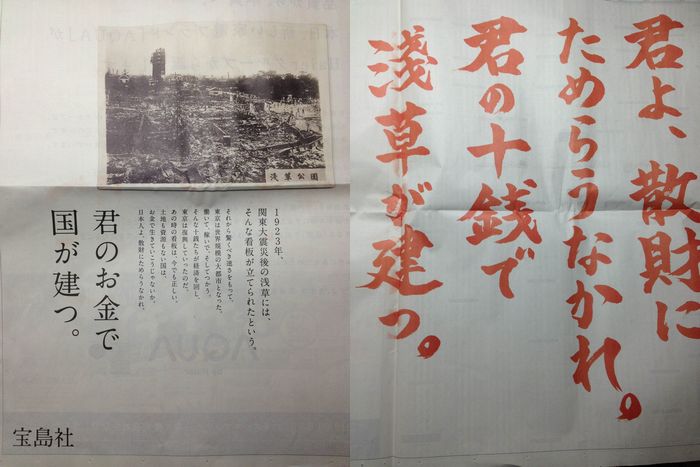 君よ、散財に
ためらうなかれ。
君の十銭で
淺草が建つ。
淺草公園
1923年、
関東大震災後の浅草には、
そんな看板が立てられたという。
それから驚くべき速さをもって、
東京は世界規模の大都市となった。
働いて、稼いで、そしてつかう。
そんな十銭たちが経済を回し、
東京は復興していったのだ。
あの時の看板は、今でも正しい。
土地も資源もない国は、
お金で生きていこうじゃないか。
日本人よ、散財にためらうなかれ。
君のお金で
国が建つ。
宝島社
AQUA